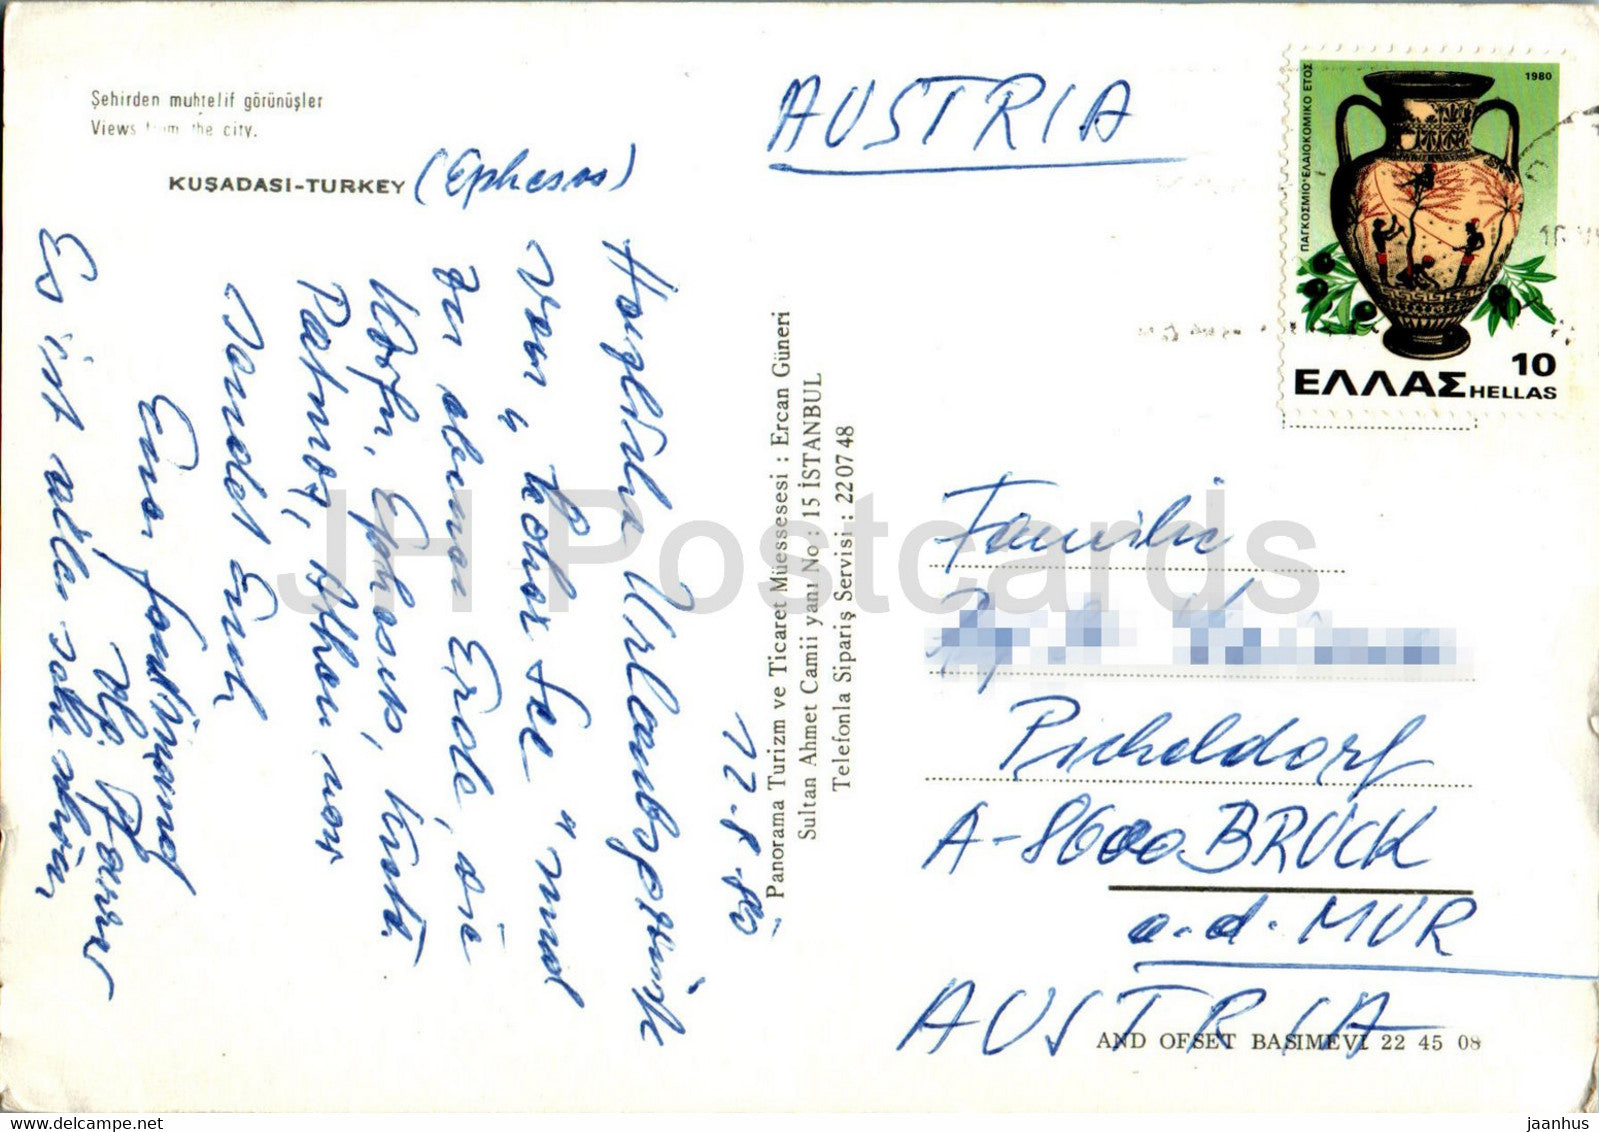 Şehirden muhtelif görünüşler
Views from the city.
KUŞADASI-TURKEY (Ephesos)
12.8.80
Herzliche Urlaubsgrüße
von "hoher See" und
zu ebener Erde, sie
Korfu, Ephesus, Kreta.
Patmos, Athen von
Euer
Es ist alles sehr schön,
Panorama Turizm ve Ticaret Müessesesi : Ercan Güneri
Sultan Ahmet Camii yanı No : 15 İSTANBUL
Telefonla Sipariş Servisi : 22 07 48
AUSTRIA
ΠΑΓΚΟΣΜΙΟ ΕΛΑΙΟΚΟΜΙΚΟ ΕΤΟΣ
1980
10
ΕΛΛΑΣ HELLAS
Familie
Picheldorf
A-8600 BRUCK
a.d. MUR
AUSTRIA
AND OFSET BASIMEVİ 22 45 08
JH Postcards
www.delcampe.net
jaanhus